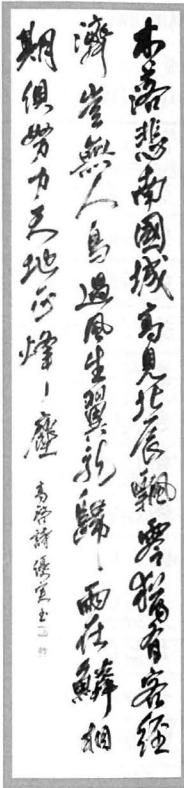 木落悲南國城高見北辰飄零猶有客經
濟豈無人鳥過風生翼龍歸雨在鱗相
期俱努力天地正烽塵
高啓詩